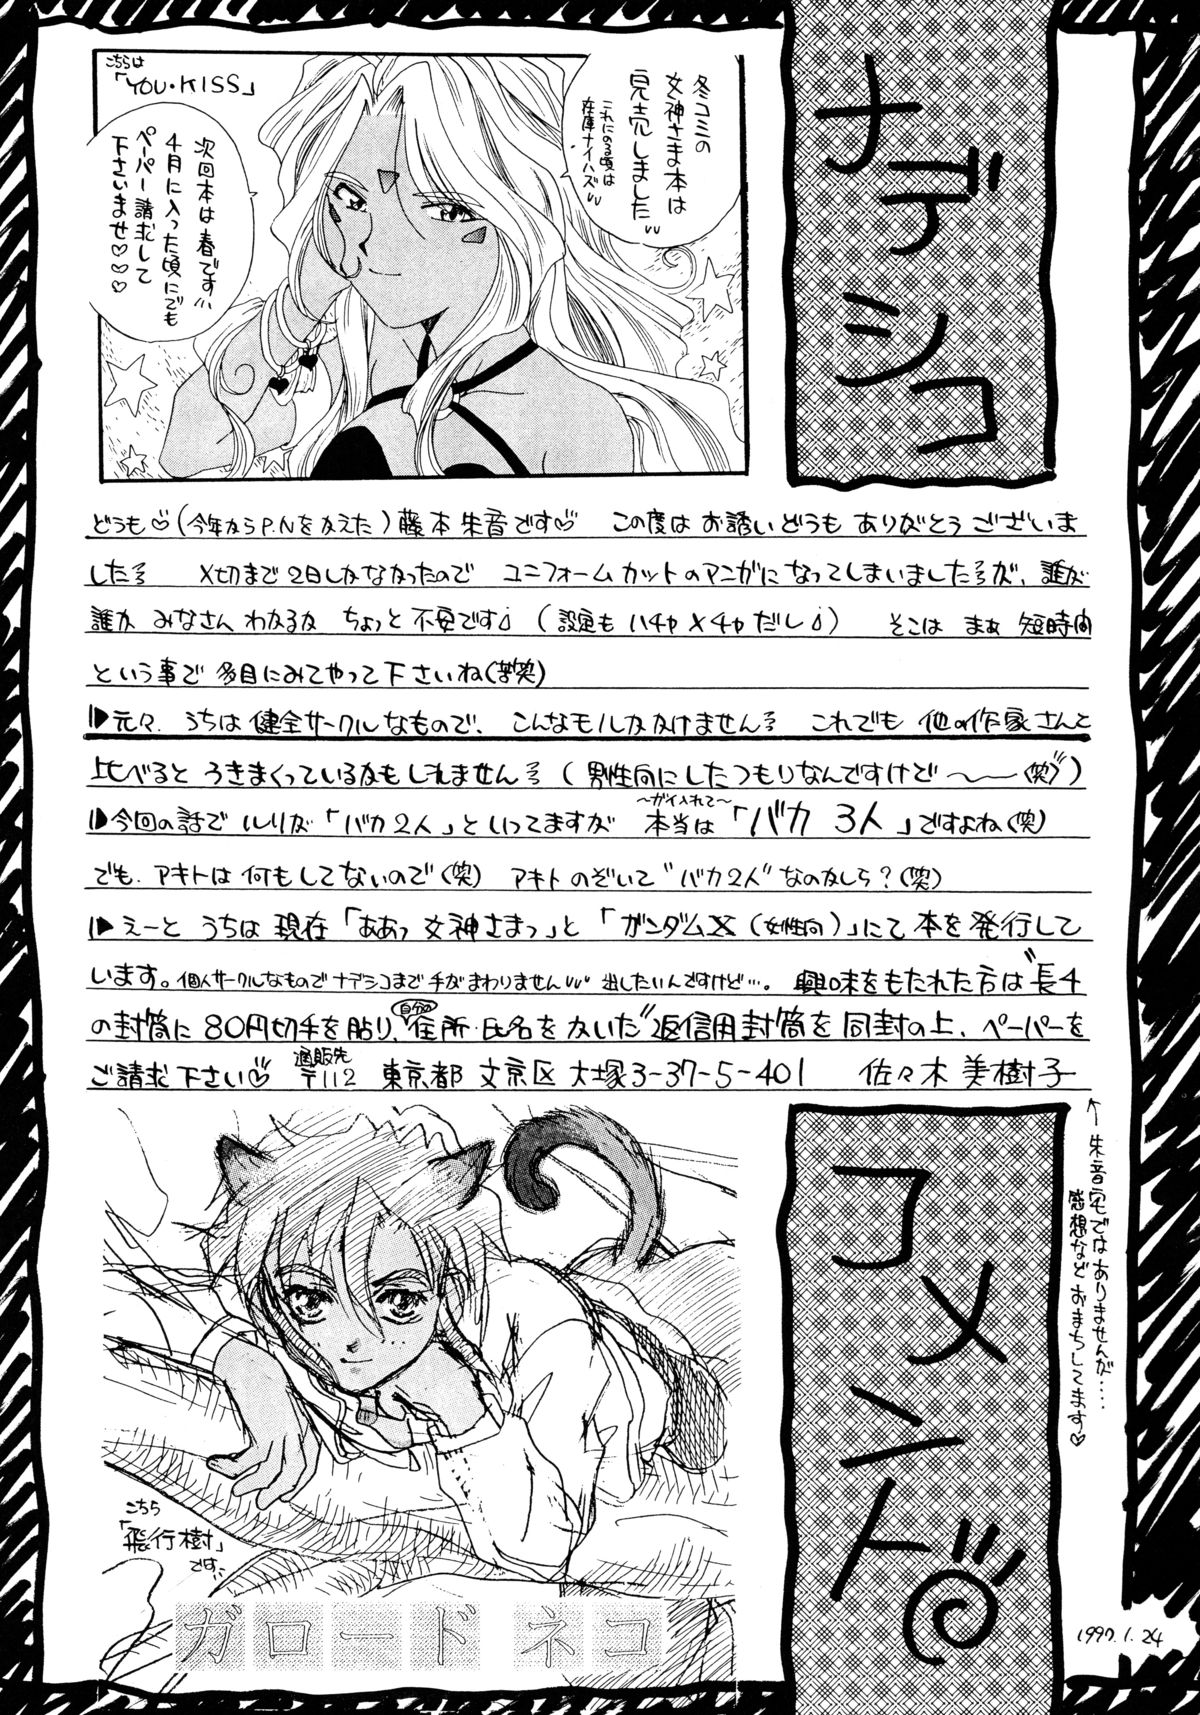 ナデシコ
冬コミの
女神さま本は
完売しました
これにのる頃は
在庫ナイハズ
こちらは
「YOU・KISS」
次回本は春です
4月に入った頃にでも
ペーパー請求して
下さいませ♡♡♡
どうも♡(今年からP.Nをかえた)藤本朱音です♡ この度はお誘いどうもありがとうございま
した 〆切まで2日しかなかったので ユニフォームカットのマンガになってしまいましたが、誰が
誰か みなさん わかるか ちょっと不安です (設定もハチャメチャだし) そこは まぁ 短時間
という事で 多目にみてやって下さいね(苦笑)
▶元々、うちは健全サークルなもので、こんなモノしかかけません これでも 他の作家さんと
比べると うきまくっているかもしれません (男性向にしたつもりなんですけど〜〜(笑))
▶今回の話で ルリが「バカ2人」といってますが 本当は「バカ 3人」ですよね(笑)
〜ガイ入れて〜
でも、アキトは何もしてないので(笑) アキトのぞいて"バカ2人"なのかしら?(笑)
▶えーと うちは現在「ああっ女神さまっ」と「ガンダムX(女性向)」にて本を発行して
います。個人サークルなものでナデシコまで手がまわりません 出したいんですけど…。興味をもたれた方は"長4
の封筒に80円切手を貼り、自分の住所・氏名をかいた"返信用封筒を同封の上、ペーパーを
ご請求下さい♡ 通販先 〒112 東京都文京区大塚3-37-5-401 佐々木美樹子
↑朱音宅ではありませんが……
感想などおまちしてます♡
コメント
こちら
「飛行樹」
です
ガロードネコ
1997.1.24